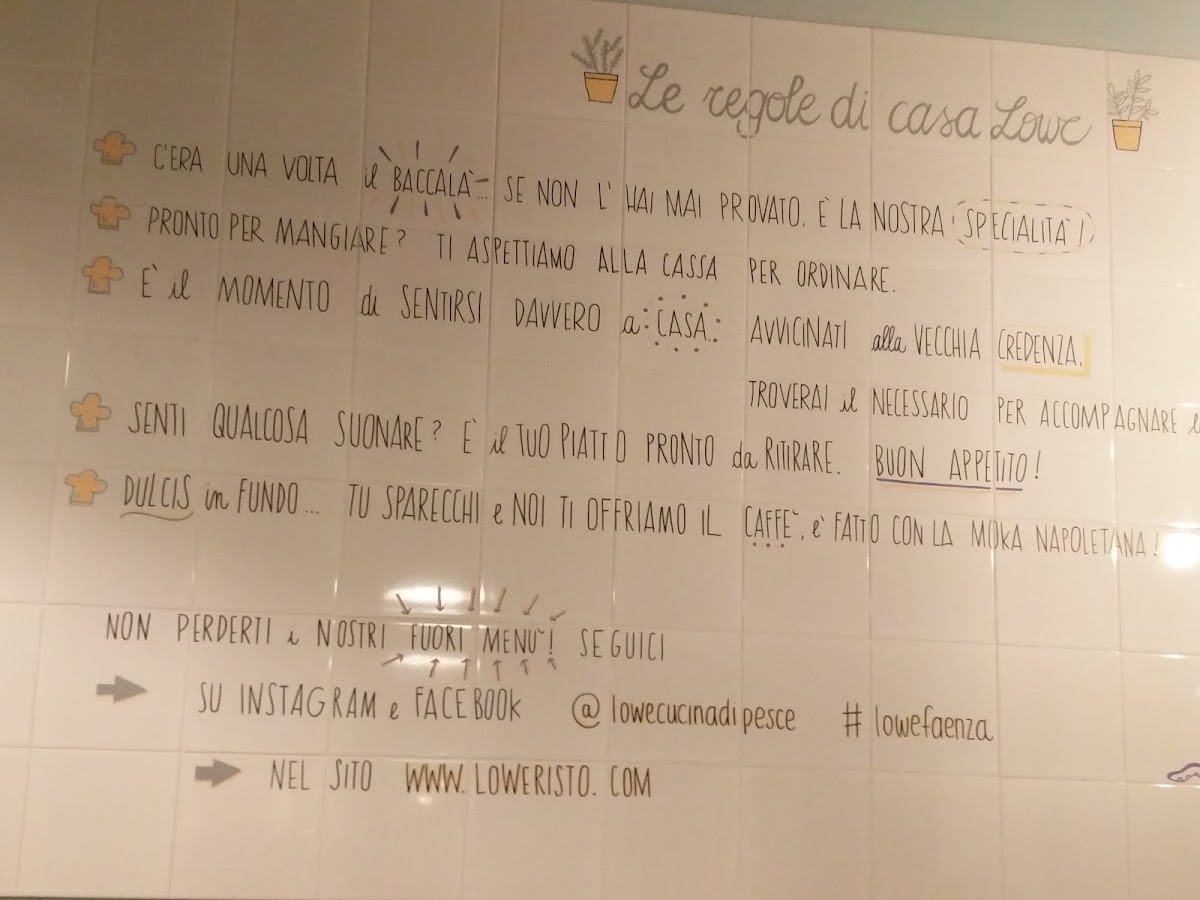 Le regole di casa Lowe
C'ERA UNA VOLTA il BACCALÀ... SE NON L'HAI MAI PROVATO, È LA NOSTRA SPECIALITÀ!
PRONTO PER MANGIARE? TI ASPETTIAMO ALLA CASSA PER ORDINARE.
È il MOMENTO di SENTIRSI DAVVERO a CASA. AVVICINATI alla VECCHIA CREDENZA,
TROVERAI il NECESSARIO PER ACCOMPAGNARE
SENTI QUALCOSA SUONARE? È il TUO PIATTO PRONTO da RITIRARE. BUON APPETITO!
DULCIS in FUNDO... TU SPARECCHI e NOI TI OFFRIAMO IL CAFFÈ, è FATTO CON LA MOKA NAPOLETANA!
NON PERDERTI i NOSTRI FUORI MENÙ! SEGUICI
SU INSTAGRAM e FACEBOOK @lowecucinadipesce #lowefaenza
NEL SITO WWW.LOWERISTO.COM